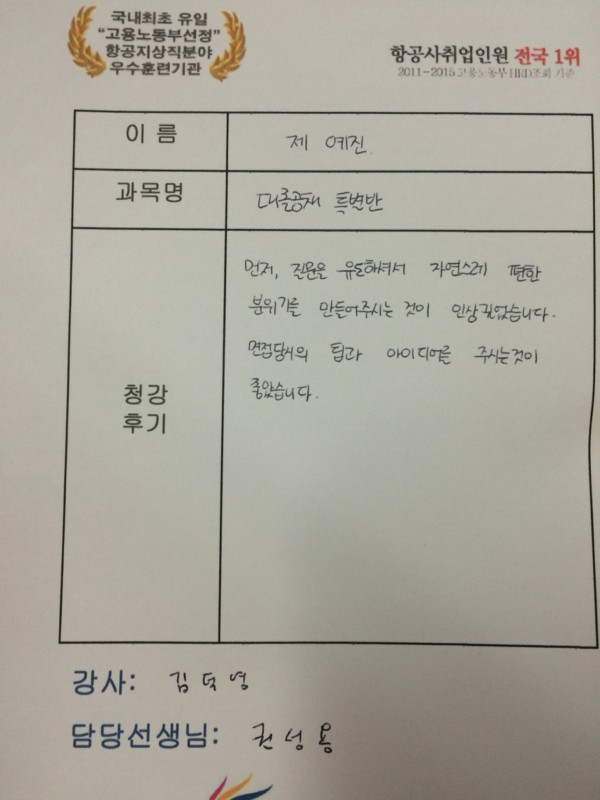 국내최초 유일
“고용노동부선정”
항공지상직분야
우수훈련기관
항공사취업인원 전국 1위
2011~2015 고용노동부 HRD조회 기준
이 름
제 예진
과목명
대졸공채 특별반
청강
후기
먼저, 질문을 유도해셔서 자연스레 편한
분위기를 만들어주시는 것이 인상깊었습니다.
면접당시의 팁과 아이디어를 주시는것이
좋았습니다.
강사: 김덕영
담당선생님: 권성용